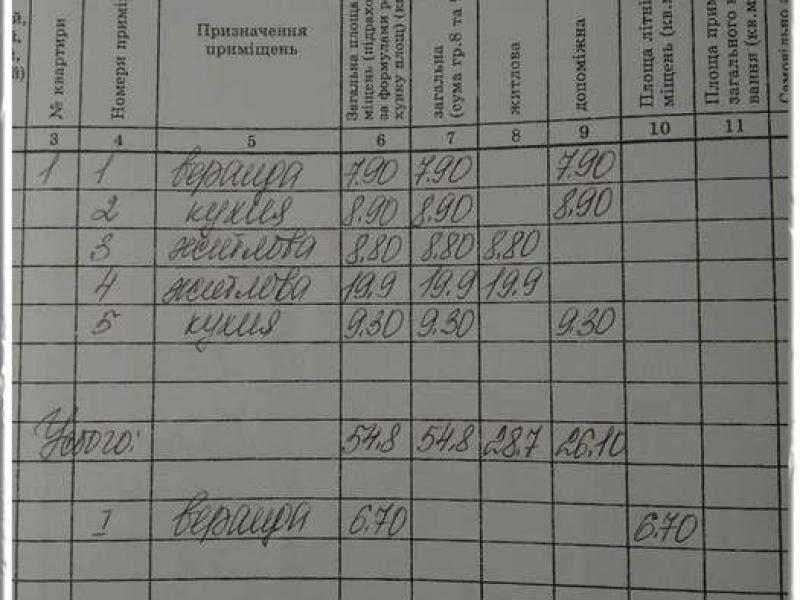 й,
г,
е,
й)
№ квартири
Номери примі
Призначення
приміщень
Загальна площа
міщень (підрахо
за формулами р
хунку площ) (к
загальна
(сума гр.8 та
житлова
допоміжна
Площа літні
міщень (кв.м
Площа прим
загального к
вання (кв.м
Самовільно
3 4 5 6 7 8 9 10 11
1 1 веранда 7.90 7.90 7.90
2 кухня 8.90 8.90 8.90
3 житлова 8.80 8.80 8.80
4 житлова 19.9 19.9 19.9
5 кухня 9.30 9.30 9.30
Усього: 54.8 54.8 28.7 26.10
I веранда 6.70 6.70